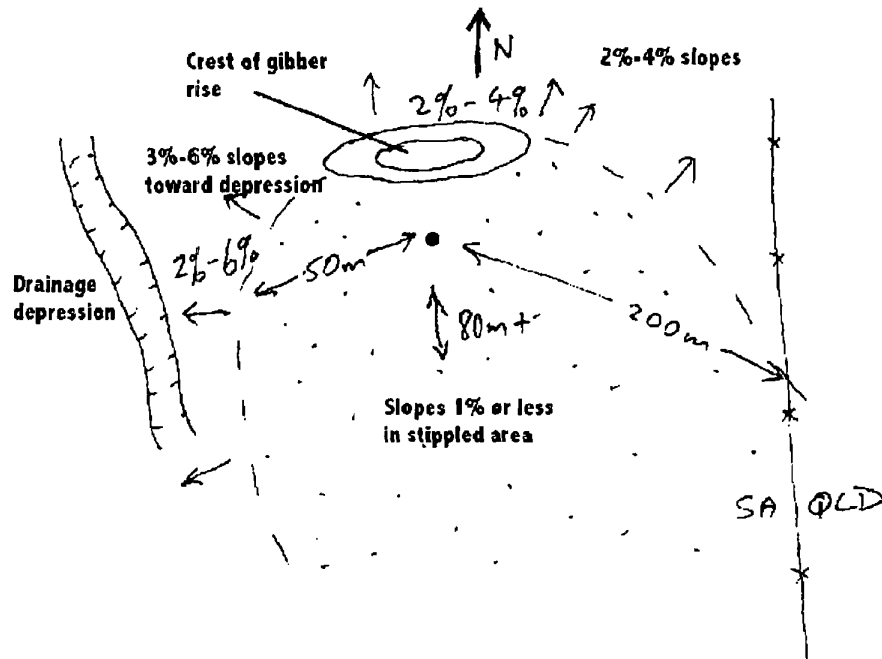 N
Crest of gibber
rise
2%-4% slopes
2%-4%
3%-6% slopes
toward depression
2%-6%
50m
Drainage
depression
80m+
200m
Slopes 1% or less
in stippled area
SA QLD